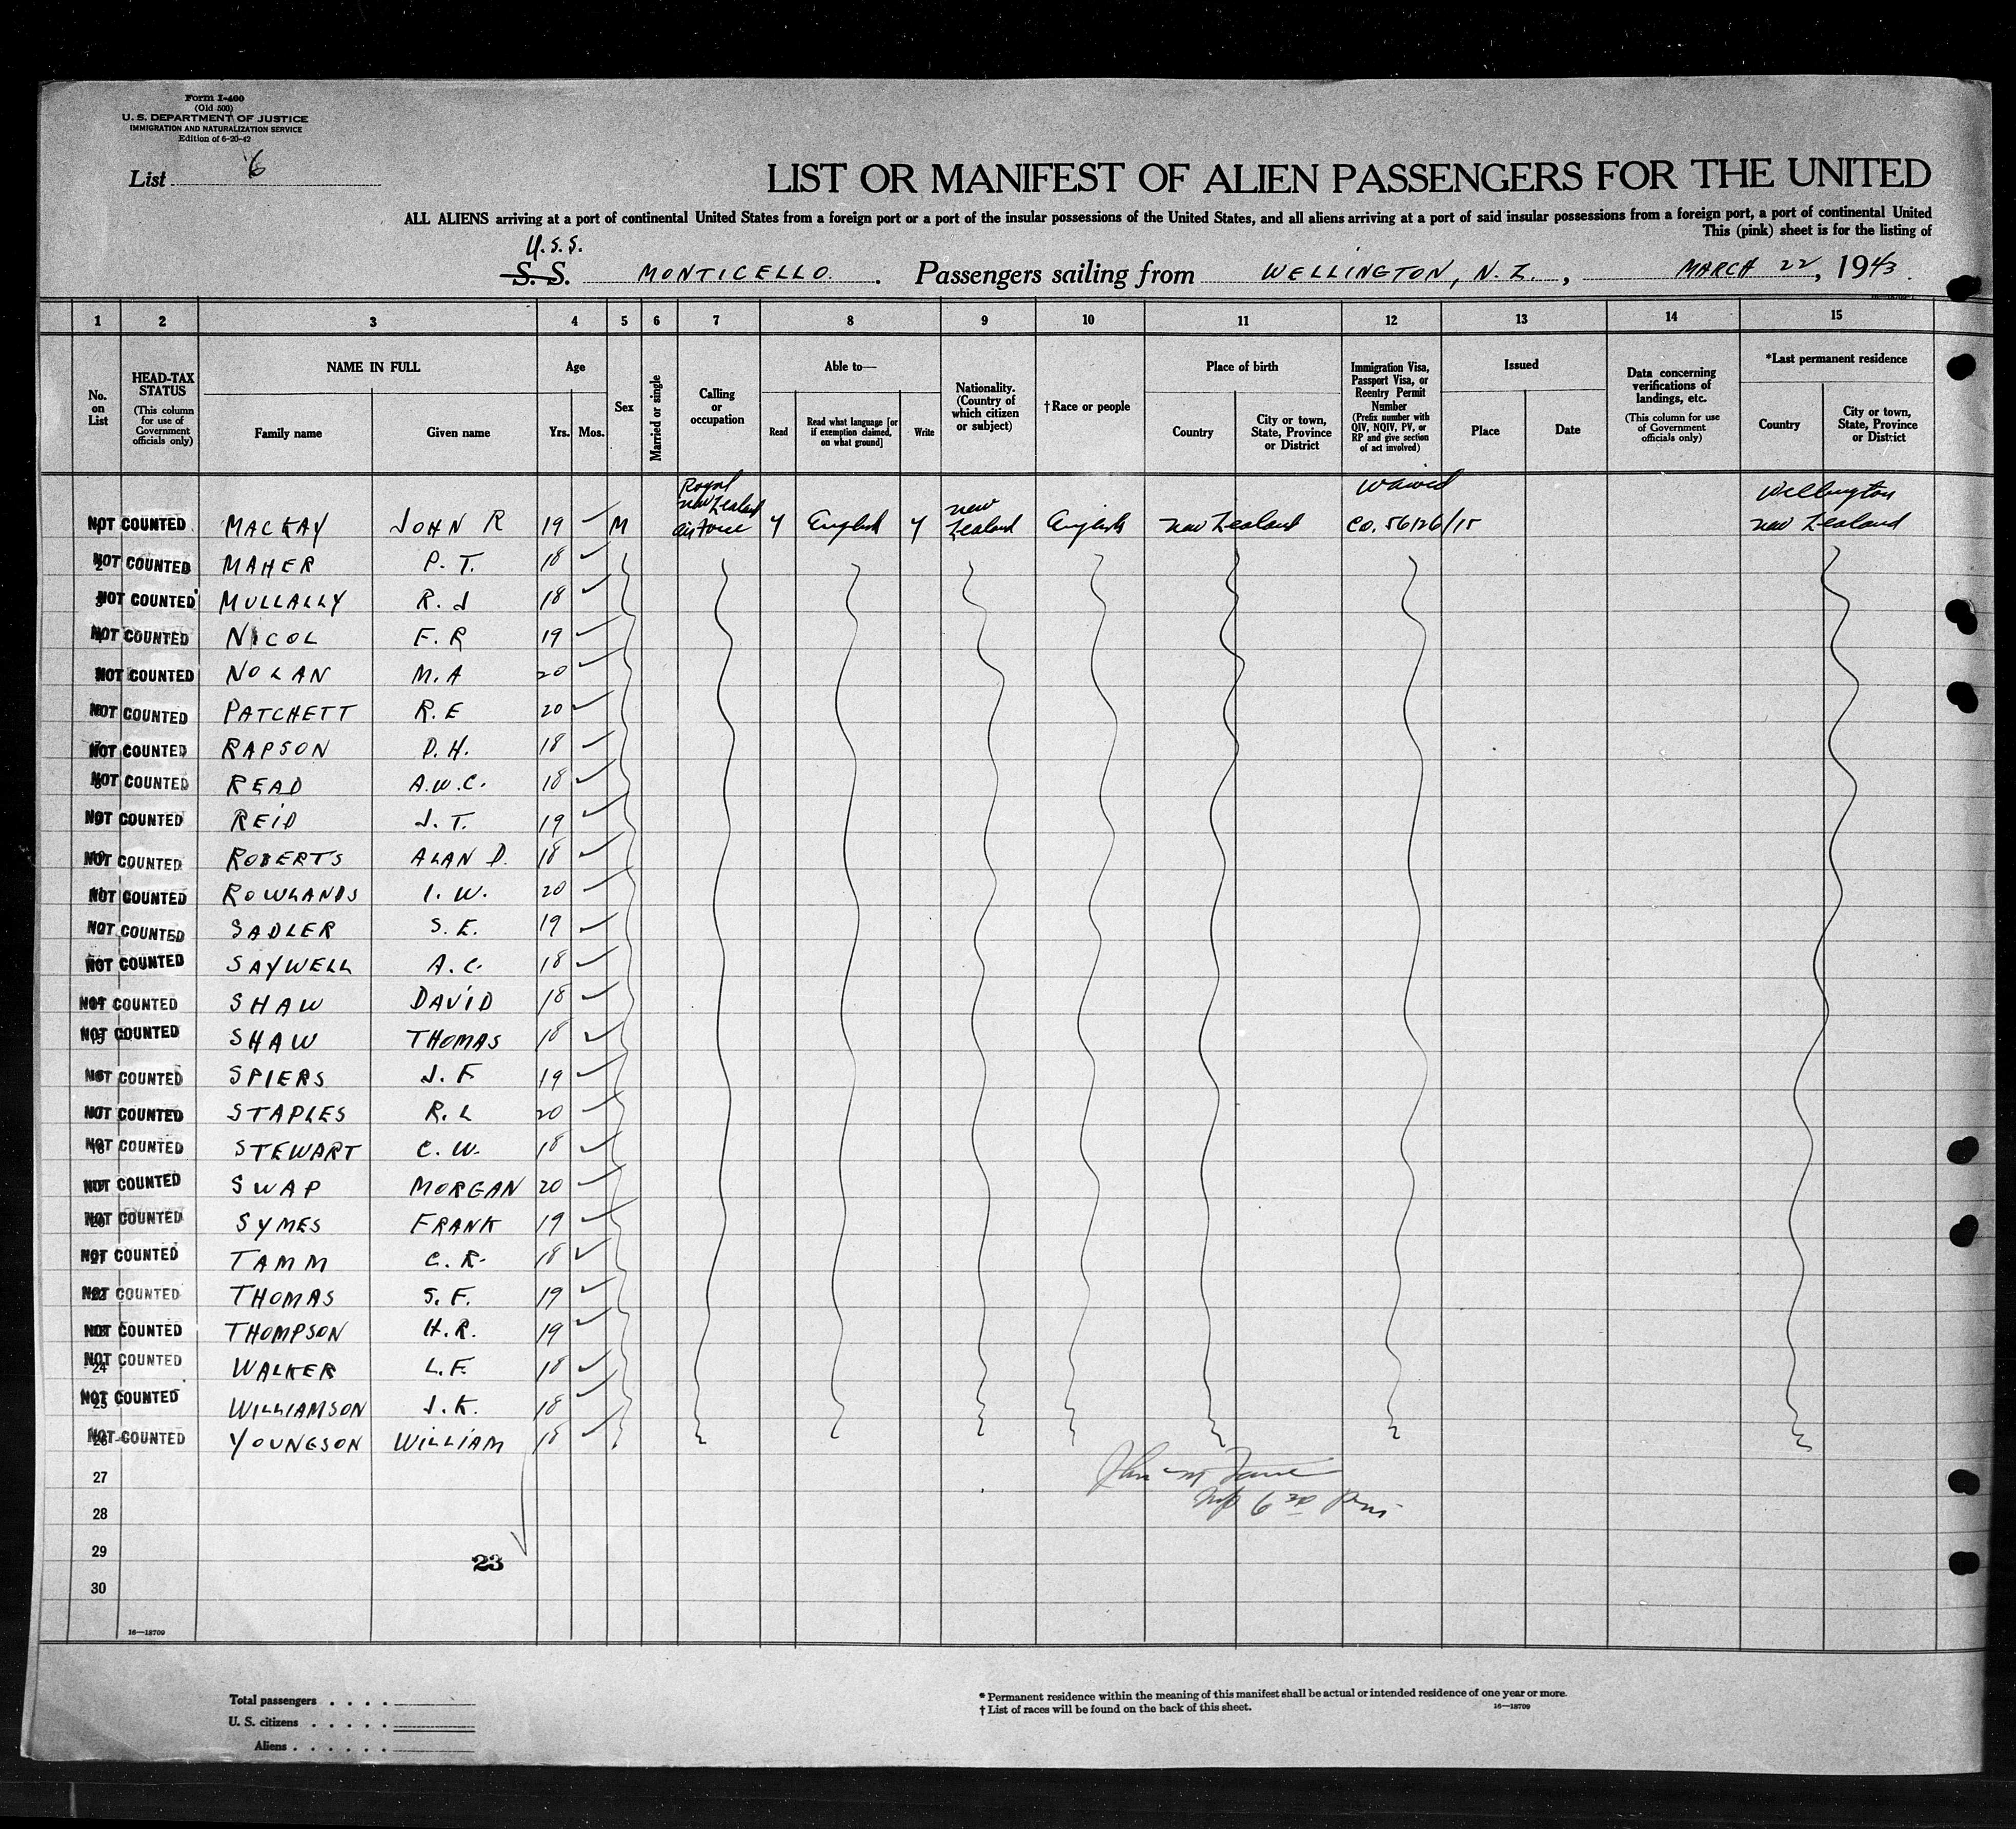 Form I-400
(Old 500)
U. S. DEPARTMENT OF JUSTICE
IMMIGRATION AND NATURALIZATION SERVICE
Edition of 6-20-42
List 6
LIST OR MANIFEST OF ALIEN PASSENGERS FOR THE UNITED
ALL ALIENS arriving at a port of continental United States from a foreign port or a port of the insular possessions of the United States, and all aliens arriving at a port of said insular possessions from a foreign port, a port of continental United
This (pink) sheet is for the listing of
U.S.S.
S. S. MONTICELLO. Passengers sailing from WELLINGTON, N.Z., MARCH 22, 1943
1 2 3 4 5 6 7 8 9 10 11 12 13 14 15
No. on List
HEAD-TAX STATUS
(This column for use of Government officials only)
NAME IN FULL
Family name Given name
Age
Yrs. Mos.
Sex
Married or single
Calling or occupation
Able to—
Read
Read what language [or if exemption claimed, on what ground]
Write
Nationality. (Country of which citizen or subject)
†Race or people
Place of birth
Country
City or town, State, Province or District
Immigration Visa, Passport Visa, or Reentry Permit Number
(Prefix number with QIV, NQIV, PV, or RP and give section of act involved)
Issued
Place Date
Data concerning verifications of landings, etc.
(This column for use of Government officials only)
*Last permanent residence
Country
City or town, State, Province or District
NOT COUNTED MACKAY JOHN R 19 M Royal New Zealand Air Force Y English Y New Zealand English New Zealand Waived CO. 56126/15 Wellington New Zealand
2 NOT COUNTED MAHER P. T. 18
3 NOT COUNTED MULLALLY R. J 18
NOT COUNTED NICOL E. R 19
NOT COUNTED NOLAN M. A 20
NOT COUNTED PATCHETT R. E 20
NOT COUNTED RAPSON D. H. 18
NOT COUNTED READ A.W.C. 18
NOT COUNTED REID J. T. 19
NOT COUNTED ROBERTS ALAN D. 18
NOT COUNTED ROWLANDS I. W. 20
NOT COUNTED SADLER S. E. 19
NOT COUNTED SAYWELL A. C. 18
NOT COUNTED SHAW DAVID 18
15 NOT COUNTED SHAW THOMAS 18
NOT COUNTED SPIERS J. F 19
NOT COUNTED STAPLES R. L 20
18 NOT COUNTED STEWART C. W. 18
NOT COUNTED SWAP MORGAN 20
20 NOT COUNTED SYMES FRANK 19
21 NOT COUNTED TAMM C. R. 18
22 NOT COUNTED THOMAS S. F. 19
NOT COUNTED THOMPSON H. R. 19
24 NOT COUNTED WALKER L. F. 18
25 NOT COUNTED WILLIAMSON J. K. 18
26 NOT COUNTED YOUNGSON WILLIAM 18
27
28
29
30
6 30 Pm
23
16—18709
Total passengers . . . .
U. S. citizens . . . . .
Aliens . . . . . .
* Permanent residence within the meaning of this manifest shall be actual or intended residence of one year or more.
† List of races will be found on the back of this sheet.
16—18709